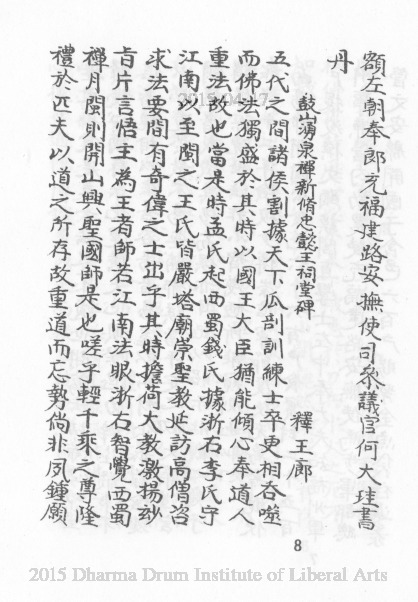 額左朝奉郎充福建路安撫使司叅議官何大珪書
丹
鼓山湧泉禪新脩忠懿王祠堂碑
釋王廊
五代之間諸侯割據天下瓜剖訓練士卒更相吞噬
而佛法獨盛於其時以國王大臣猶能傾心奉道人
重法故也當是時孟氏起西蜀錢氏據浙右李氏守
江南以至閩之王氏皆嚴塔廟崇聖教延訪高僧咨
求法要間有奇偉之士出乎其時擔荷大教激揚玅
旨片言悟主為王者師若江南法眼浙右智覺西蜀
禪月閩則開山興聖國師是也嗟乎輕千乘之尊隆
禮於匹夫以道之所存故重道而忘勢倘非夙鍾願
8
2015 Dharma Drum Institute of Liberal Arts